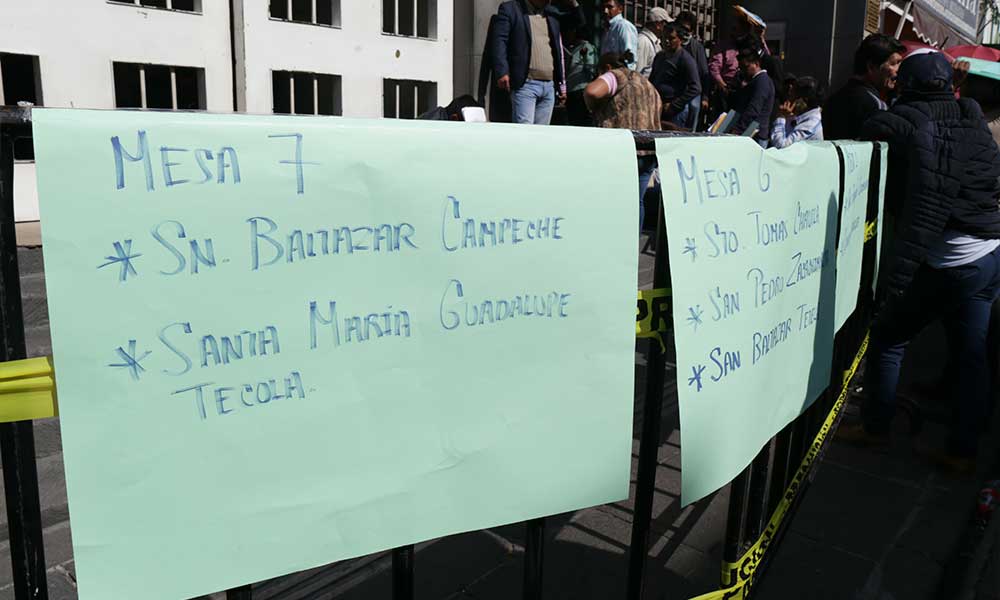 MESA 7
* SN. BALTAZAR CAMPECHE
* SANTA MARÍA GUADALUPE
TECOLA.
MESA 6
* STO. TOMAS CHAUTLA
* SAN PEDRO
* SAN BALTAZAR